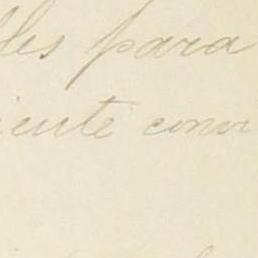 lles para
iente conv